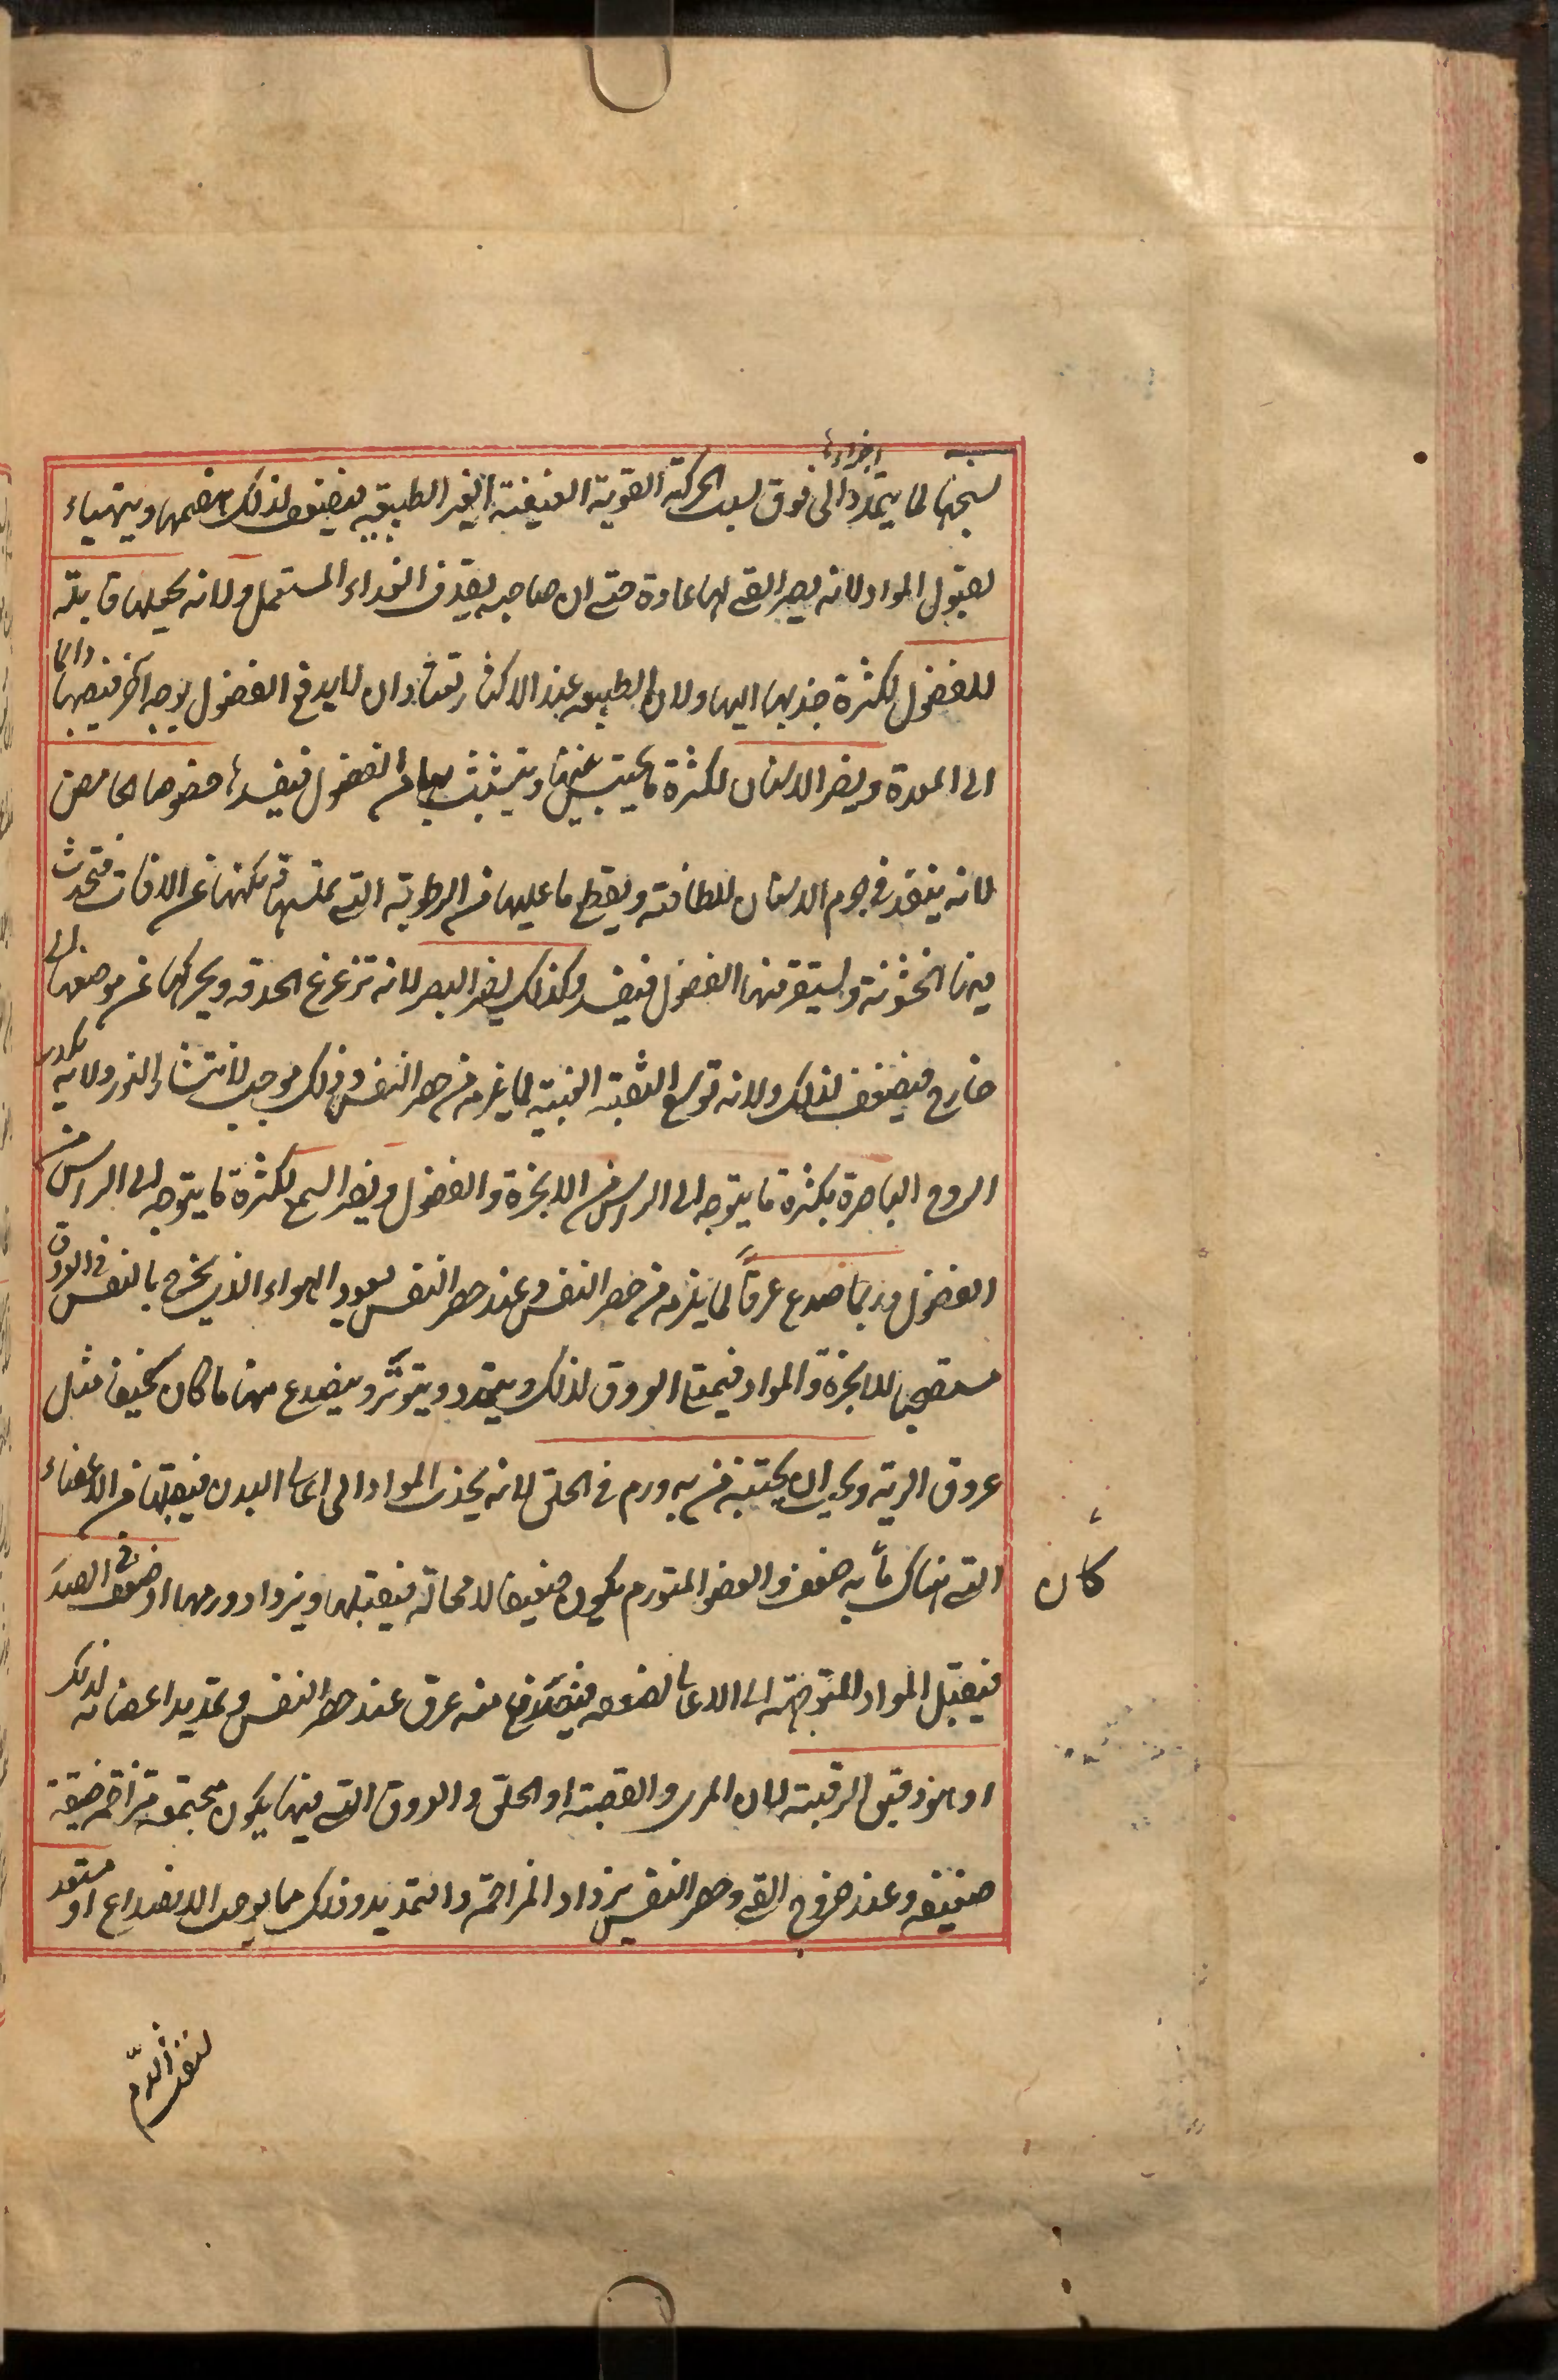 اجزاءها
نسجها لما يتمدد الى فوق بسبب الحركة القوية العنيفة الغير الطبيعية فيضعف لذلك هضمها ويتهياء
لقبول المواد لانه يصير القى لها عادة حتى ان صاحبه يقذف الغذاء المستعمل ولانه يجعلها قابلة
للفضول لكثرة جذبها اليها ولان الطبيعة عند الاكثار تعتاد ان لا يدفع الفضول بوجه آخر فيصبها دائما
الى المعدة ويضر الاسنان لكثرة ما يحتبس فيها ويتشبث بها من الفضول فيفسدها خصوصا الحامض
لانه ينفذ في جرم الاسنان للطافته ويقطع ما عليها من الرطوبة التى تملسها وتمكنها عن الافات فتحدث
فيها الخشونة ويستقر فيها الفضول فيفسد وكذلك يضر البصر لانه تزعزع الحدقه ويحركها عن موضعها الى
خارج فيضعف لذلك ولانه توسع الثقبة العنبية لما يلزمه من حصر النفس وذلك موجب لانتشار النور ولانه يكدر
الروح الباصرة بكثرة ما يتوجه الى الراس من الابخرة والفضول ويضر السمع لكثرة ما يتوجه الى الراس من
الفضول وربما صدع عرقاً لما يلزمه من حصر النفس وعند حصر النفس يعود الهواء الذى يخرج بالنفس فى العروق
مستصحبا للابخرة والمواد فيمتلى العروق لذلك ويتمدد ويتوتر وينصدع منها ما كان نحيفا مثل
عروق الرية ويجب ان يجتنبه من به ورم فى الحلق لانه يجذب المواد الى اعالى البدن فيقبلها من الاعضاء
التى هناك ما به ضعف والعضو المتورم يكون ضعيفا لا محالة فيقبلها ويزداد ورمها او ضعف فى الصدر
كان
فيقبل المواد المتوجهة الى الاعالى لضعفه فينصدع منه عرق عند حصر النفس وتمديد اعضائه لذلك
او هو دقيق الرقبة لان المرى والقصبة او الحلق والعروق التى فيها يكون مجتمعة متزاحمة ضيقة
ضعيفه وعند خروج القى وحصر النفس يزداد المزاحمة والتمديد وذلك مما يوجب الانصداع او مستعد
لنفث الدّم